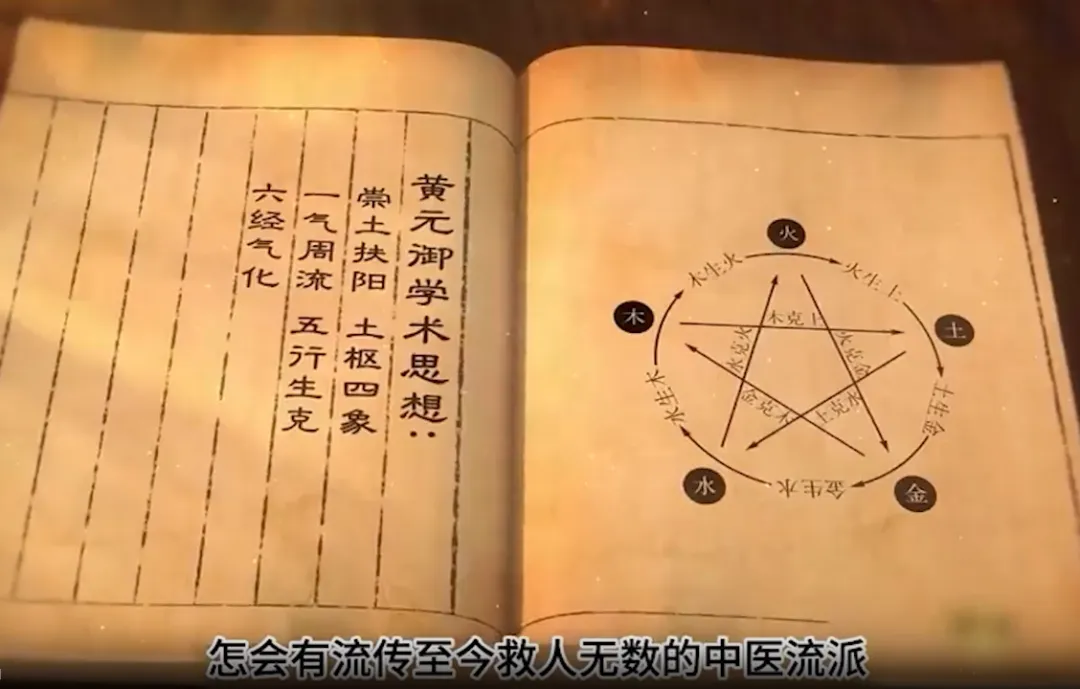 黄元御学术思想:
崇土扶阳 土枢四象
一气周流 五行生克
六经气化
火
木生火
火生土
木
土
木克土
水克火
火克金
金克木
土克水
水生木
土生金
水
金生水
金
怎会有流传至今救人无数的中医流派